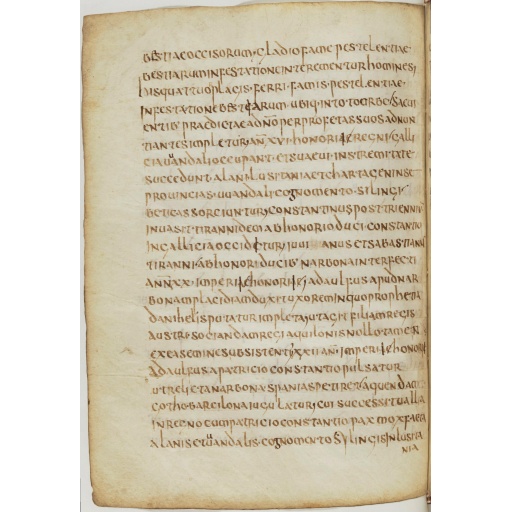 bestiae occisorum gladio fame pestelentiae
bestiarum infestatione interementur homines
his quattuor placis ferri famis pestelentiae
infestatione bestiarum ubiq in toto orbe saeui
entib praedictae a dno per profetas suos adnun
tiantes impletur ann xvi honorii regni galli
cia uuandali occupant et suaeui in extremitate
succedunt alani lusitaniae et chartagenense
prouincias uuandali cognomento silingi
beticas sorciuntur constantinus post triennium
inuasit tirannidem ab honorio duci constantio
in gallicia occiditur iuui anus et sabastianu
tiranni ab honori ducib narbona interfecti
ann xx imperi honorii adaulfus apud nar
bonam placidiam duxit uxorem in quo prophetia
danihelis putatur impleta ut ait filiam regis
austri sociandam regi aquilonis nollo tamen
ex ea semine subsistenti xxii ann imperi honorii
adaulfus a patricio constantio pulsatur
ut relicta narbona spanias petiret a quendam
gotho barcilona iugulatur cui successit uallia
in regno cum patricio constantio pax mox facta
alanis et uuandalis cognomento sylingis in lusita
nia